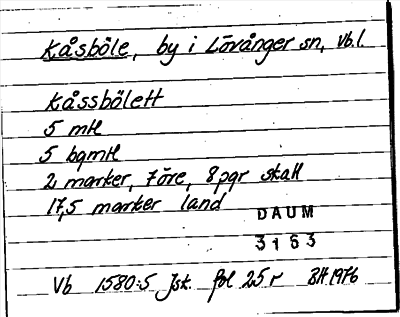 Kåsböle, by i Lövånger sn, Vb.l.
Kåssbölett
5 mtl
5 bqmtl
2 marker, 7 öre, 8 pgr skatt
17,5 marker land
DAUM
3163
Vb 1580:5 Jsk. fol 25 r BH 1976